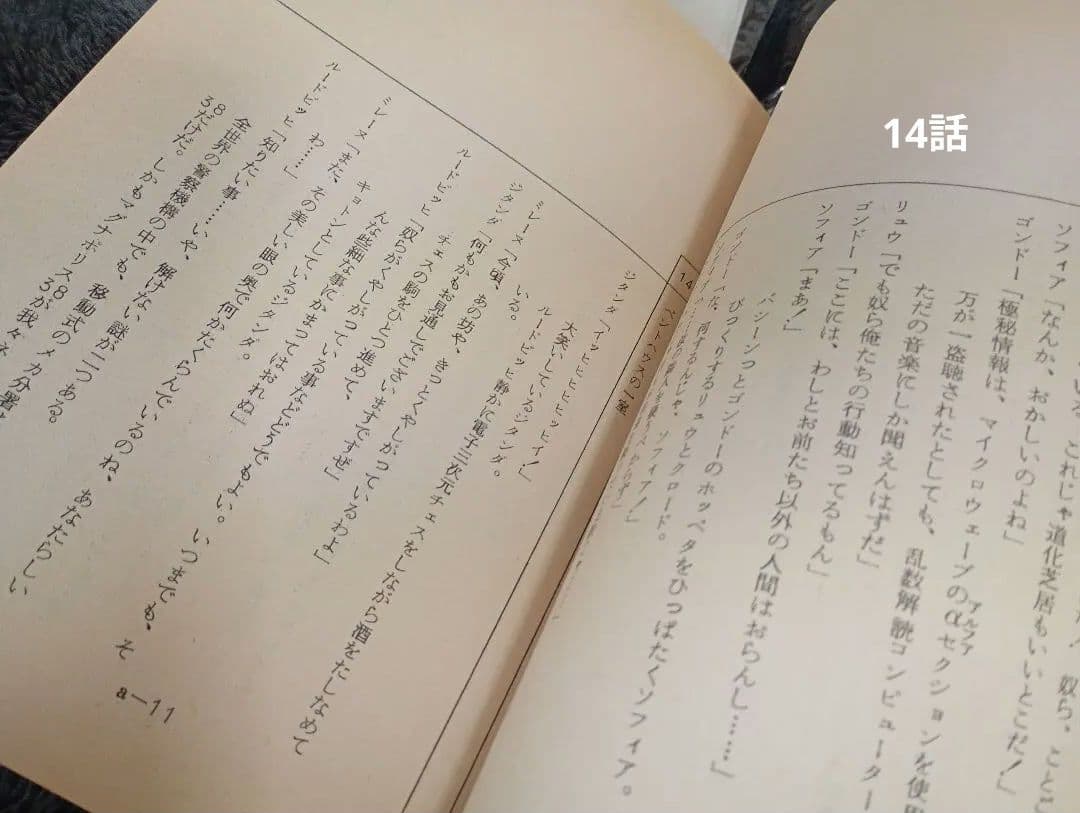 14話
いる。これじゃ道化芝居もいいとこだ！
奴ら、ことご
ソフィア「なんか、おかしいのよね」
ゴンドー「極秘情報は、マイクロウェーブのαセクションを使用
アルファ
万が一盗聴されたとしても、乱数解読コンピューター
ただの音楽にしか聞えんはずだ」
リュウ「でも奴ら俺たちの行動知ってるもん」
ゴンドー「ここには、わしとお前たち以外の人間はおらんし……」
ソフィア「まあ！」
バシーンっとゴンドーのホッペタをひっぱたくソフィア。
びっくりするリュウとクロード。
何するんじゃ、ソフィア！」
14
ペントハウスの一室
ジタンダ「イッヒヒヒヒヒッヒイ！」
大笑いしているジタンダ。
ルードビッヒ、静かに電子三次元チェスをしながら酒をたしなめて
いる。
ミレーヌ「今頃、あの坊や、きっとくやしがっているわよ」
ジタンダ「何もかもお見通しでございますですぜ」
チェスの駒をひとつ進めて、
ルードビッヒ「奴らがくやしがっている事などどうでもよい。いつまでも、そ
んな些細な事にかまってはおれぬ」
キョトンとしているジタンダ。
ミレーヌ「また、その美しい眼の奥で何かたくらんでいるのね、あなたらしい
わ……」
ルードビッヒ「知りたい事……いや、解けない謎が二つある。
全世界の警察機構の中でも、移動式のメカ分署
83だけだ。しかもマグナポリス83が我々ネ
a－11